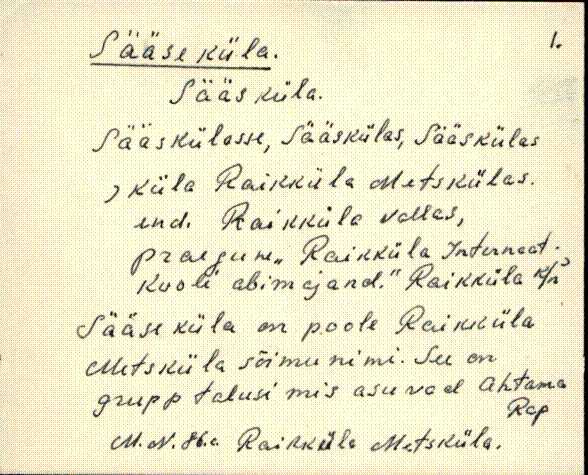 1.
Sääse küla.
Sääs küla.
Sääskülasse, Sääskülas, Sääskülas
, küla Raikküla Metskülas.
end. Raikküla vallas,
praegune „Raikküla Internaat-
kooli abimajand." Raikküla k/n
Sääse küla on poole Raikküla
Metsküla sõimunimi. See on
grupp talusi mis asuvad Ahtama
Rap
M. N. 86.a Raikküla Metsküla.